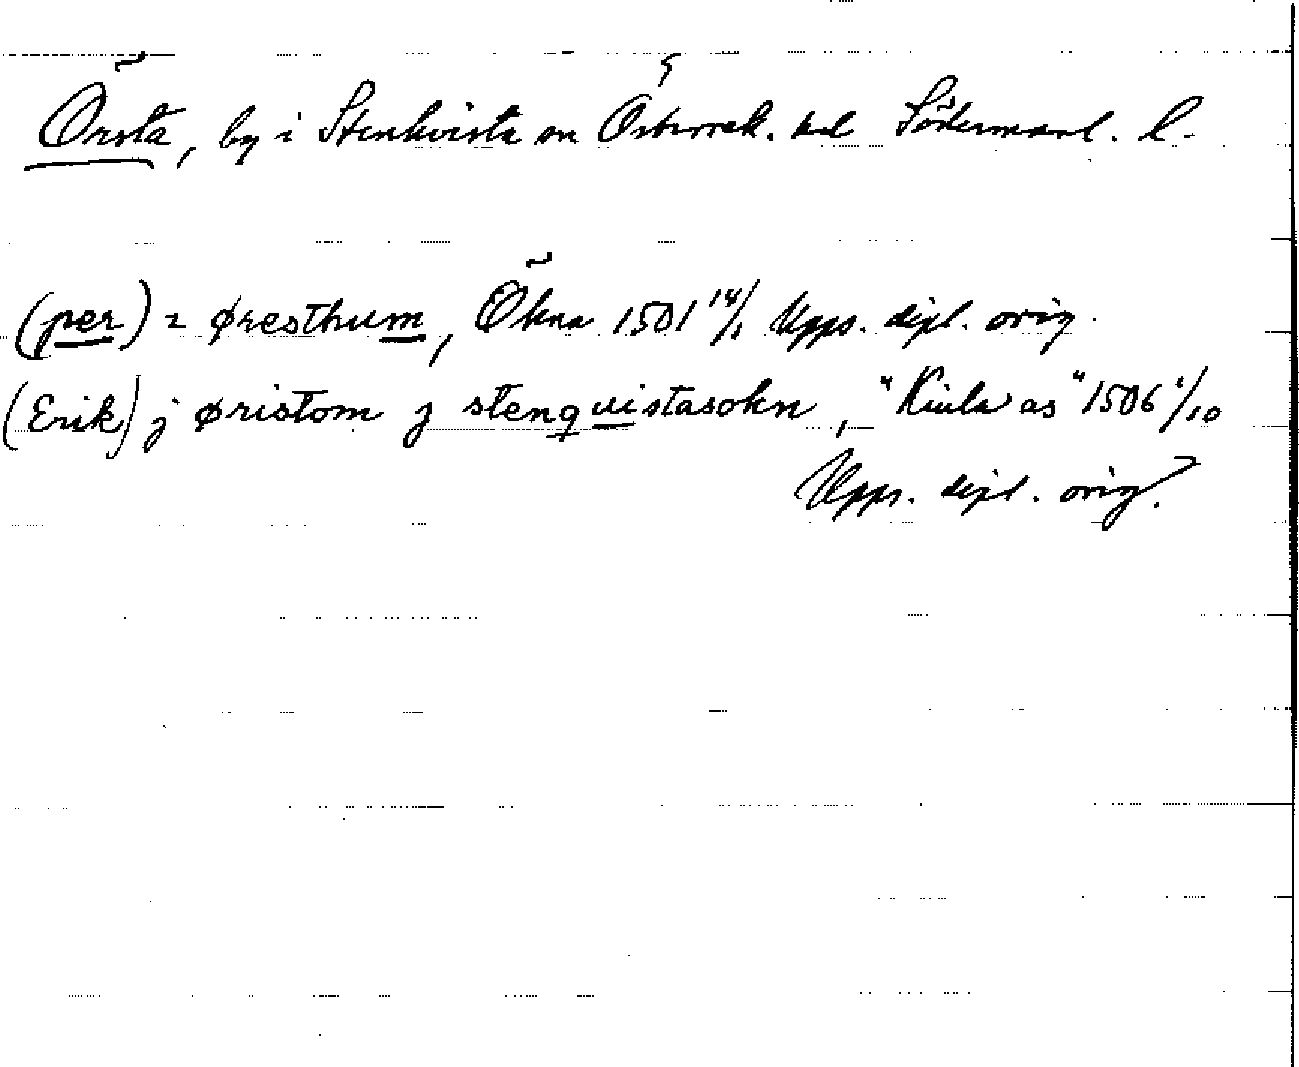 Örsta, by i Stenkvista sn Österrek. hd Södermanl. l.
(per) i øresthum, Ökna 1501 14/1 Upps. dipl. orig.
(Erik) j øristom j stenquistasokn, "Kiula ås" 1506 1/10
Upps. dipl. orig.